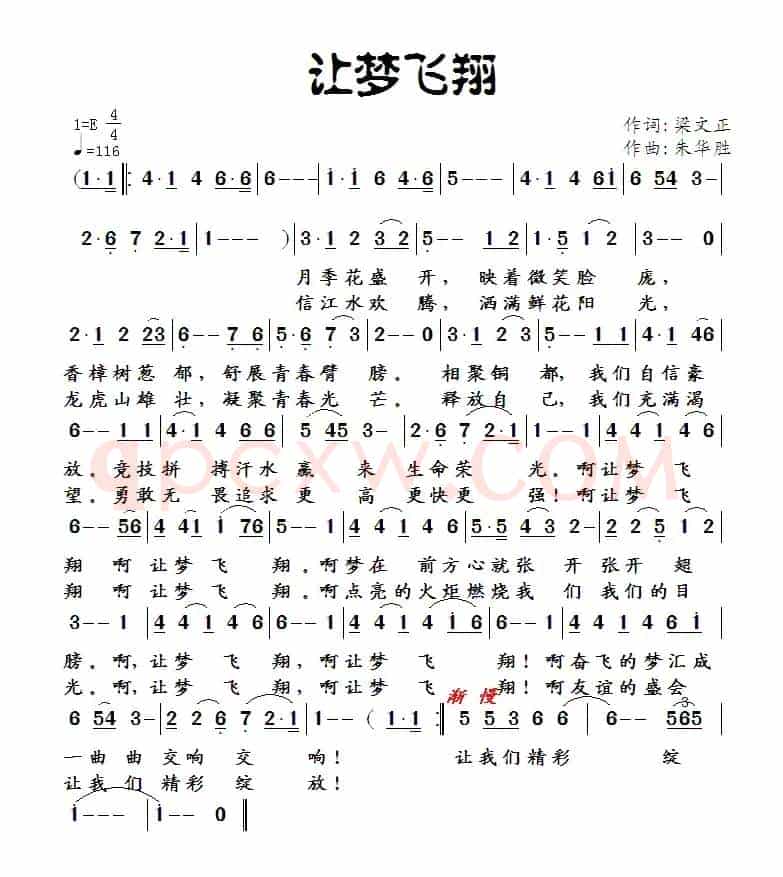 让梦飞翔
1=E 4/4
作词：梁文正
♩=116
作曲：朱华胜
(1·1 ‖: 4·1 4 6·6 | 6--- | i·i 6 4 6·4 | 5--- | 4·1 4 6i | 6 54 3- |
2·6 7 2·1 | 1--- ) | 3·1 2 32 | 5-- 12 | 1·5 1 2 | 3-- 0 |
月季花盛 开， 映着微笑脸 庞，
信江水欢 腾， 洒满鲜花阳 光，
2·1 2 23 | 6-- 76 | 5·6 7 3 | 2--0 | 3·1 23 | 5-- 11 | 4·1 46 |
香樟树葱 郁，舒展青春臂 膀。 相聚铜 都，我们自信豪
龙虎山雄 壮，凝聚青春光 芒。 释放自 己，我们充满渴
6-- 11 | 4·1 4 66 | 5 45 3- | 2·6 7 2·1 | 1--1 | 4 41 4 6 |
放。竞技拼 搏汗水 赢 来 生命荣 光。啊让梦 飞
望。勇敢无 畏追求 更 高 更快更 强！啊让梦 飞
qpcxw.COM
6-- 56 | 4 41 i 76 | 5--1 | 4 41 4 6 | 5·5 4 3 2- | 2 25 1 2 |
翔 啊 让梦 飞 翔。啊梦在 前方心就张 开 张开 翅
翔 啊 让梦 飞 翔。啊点亮的火炬燃烧我 们 我们的目
3--1 | 4 41 4 6 | 6--1 | 4 41 4 6 | 6--1 | 4 41 4 i6 |
膀。啊，让梦 飞 翔，啊让梦 飞 翔！啊奋飞的梦汇成
光。啊，让梦 飞 翔，啊让梦 飞 翔！啊友谊的盛会
渐 慢
6 54 3- | 2 26 7 2·1 | 1-- ( 1·1 :‖ 5 53 66 6 | 6-- 565 |
3
一曲 曲 交响 交 响！ 让我们精彩 绽
让我 们 精彩 绽 放！
i--- | i-- 0 ‖